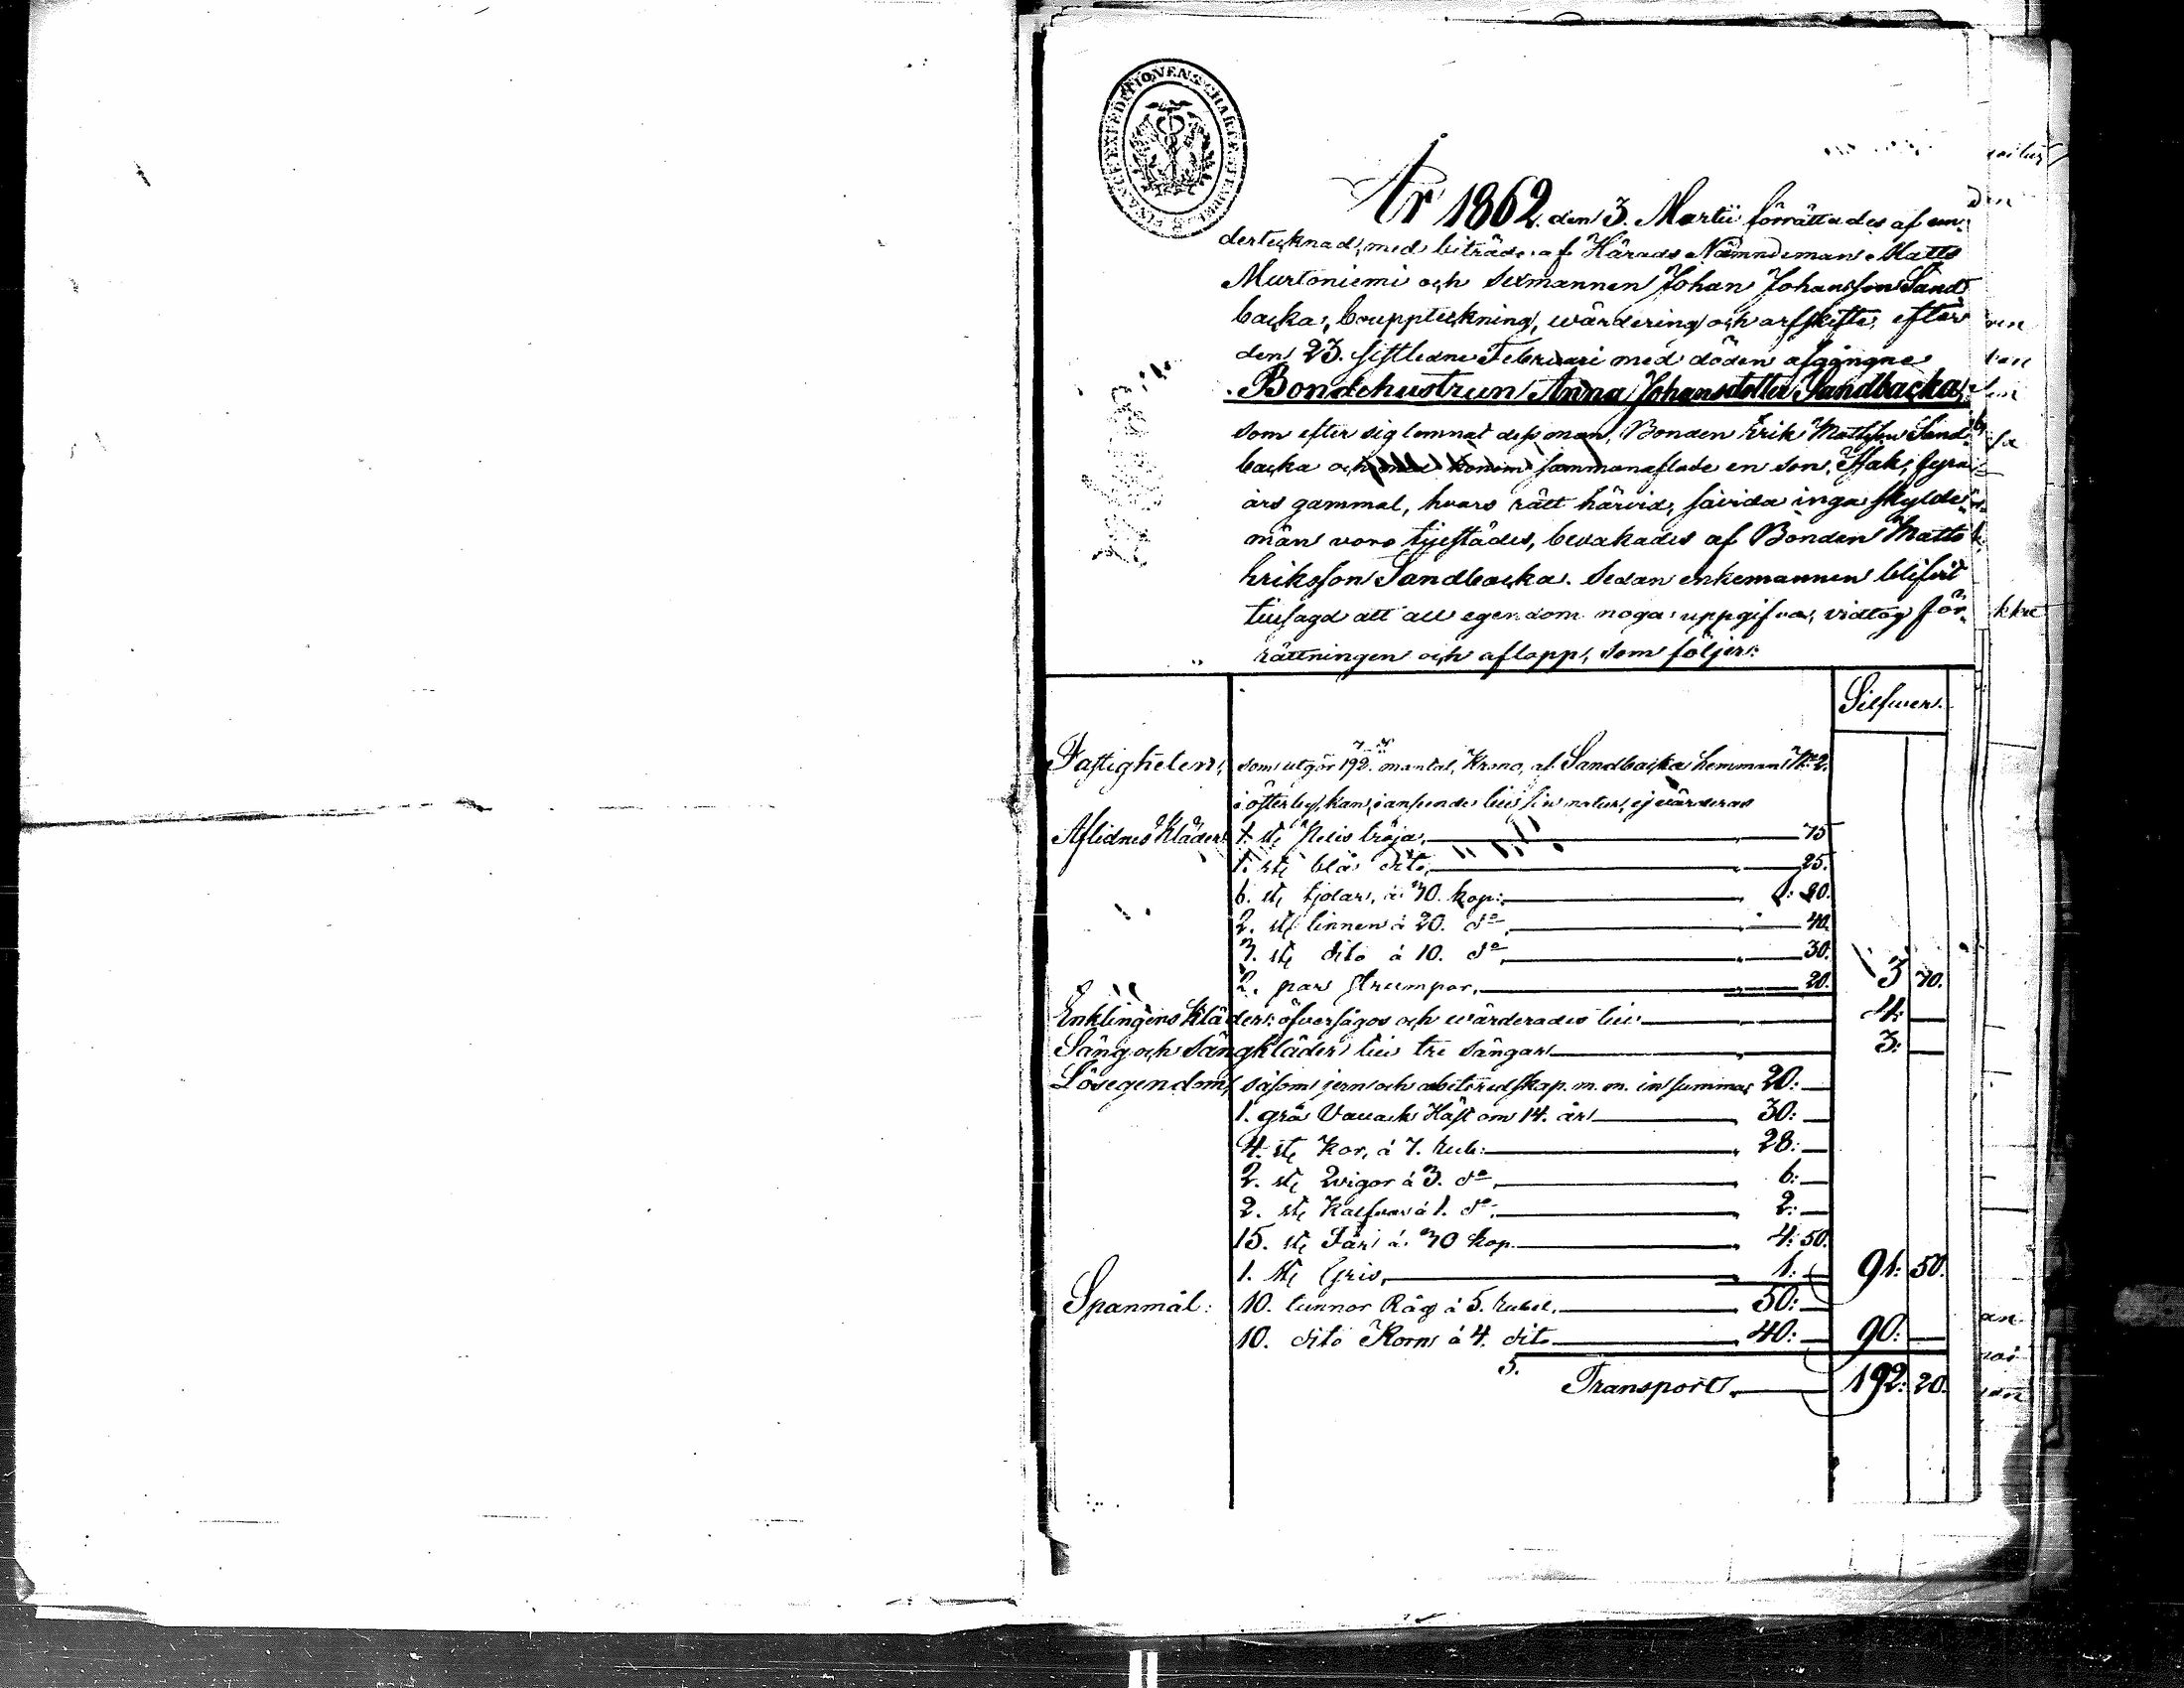 FINANCE EXPEDITIONENS CHARTÆ STEMPEL
År 1862. den 3. Martii förrättades af un-
dertecknad, med biträde af Härads Nämndeman Matts
Murtoniemi och Sexmannen Johan Johansson Sand
backa, bouppteckning, wärdering och arfskifte, efter
den 23. sistledne Februari med döden afgångne
Bondehustrun Anna Johansdotter Sandbacka,
som efter sig lemnat dess man, Bonden Erik Mattsson Sand-
backa och med honom sammanaflade en son, Isak, fyra
års gammal, hvars rätt härvid, såvida inga skylde-
män voro tillstädes, bevakades af Bonden Matts
Eriksson Sandbacka. Sedan enkemannen blifvit
tillsagd att all egendom noga uppgifva, vidtog för-
rättningen och aflopp, som följer:
Silfver.
Fastigheten, som utgör 192. mantal, Krono, af Sandbacka hemman No 2.
i Öfterby, kan, i anseende till sin natur, ej värderas
Aflidnes Kläder: 1. st. Pelis tröja, 75
1. st. blå dito, 25.
6. st. kjolar, à 30. kop: 1: 80.
2. st. linnen à 20. do 40.
3. st. dito à 10. do 30.
2. par strumpor, 20. 3 70.
Enklingens Kläder: öfversågos och wärderades till 4:
Säng och Sängkläder till tre sängar 3:
Lösegendom, såsom jern och arbetsredskap. m. m. in summa 20:
1. grå Vallack Häst om 14. år 30:
4. st. Kor, à 7. Rub: 28:
2. st. Qvigor à 3. do 6:
2. st. Kalfvar à 1. do 2:
15. st. Får à 30 kop. 4: 50.
1. st. Gris, 1: 91: 50.
Spanmål: 10. tunnor Råg à 5. Rubel. 50:
10. dito Korn à 4. dito 40: 90:
S. Transport. 192: 20.